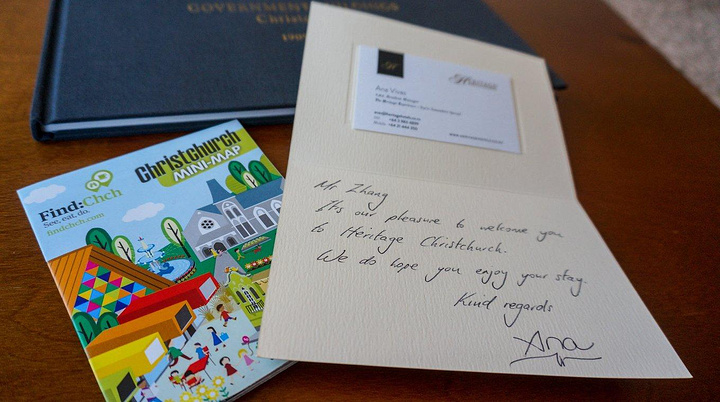 GOVERNMENT BUILDINGS
Find:Chch
See, eat, do.
findchch.com
Christchurch
MINI-MAP
H
Heritage
Ana Vivas
Mr Zhang
It's our pleasure to welcome you
to Heritage Christchurch.
We do hope you enjoy your stay.
Kind regards
Ana